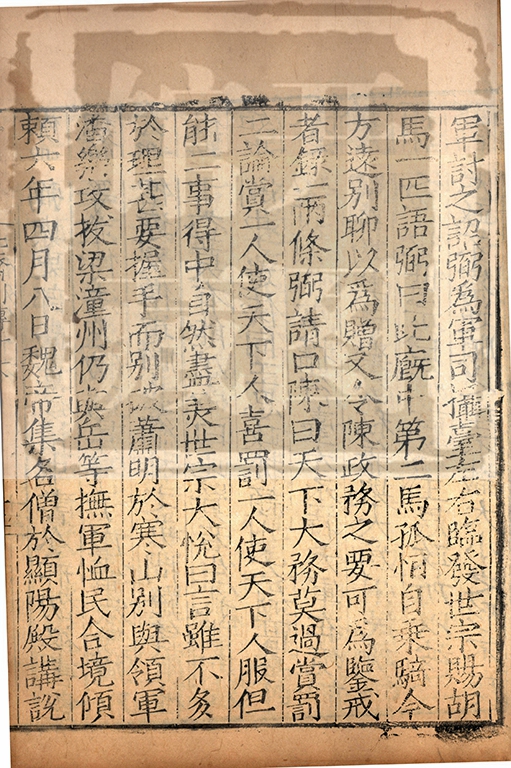 軍討之詔弼爲軍司攝臺左右臨發世宗賜胡
馬一匹語弼曰此廐中第二馬孤恒自乗騎今
方遠別聊以爲贈又令陳政務之要可爲鑒戒
者録一兩條弼請口陳曰天下大務莫過賞罰
二論賞一人使天下人喜罰一人使天下人服但
能二事得中自然盡美世宗大悅曰言雖不多
於理甚要握手而別破蕭明於寒山別與領軍
潘樂攻拔梁潼州仍與岳等撫軍恤民合境傾
頼六年四月八日魏帝集名僧於顯陽殿講說